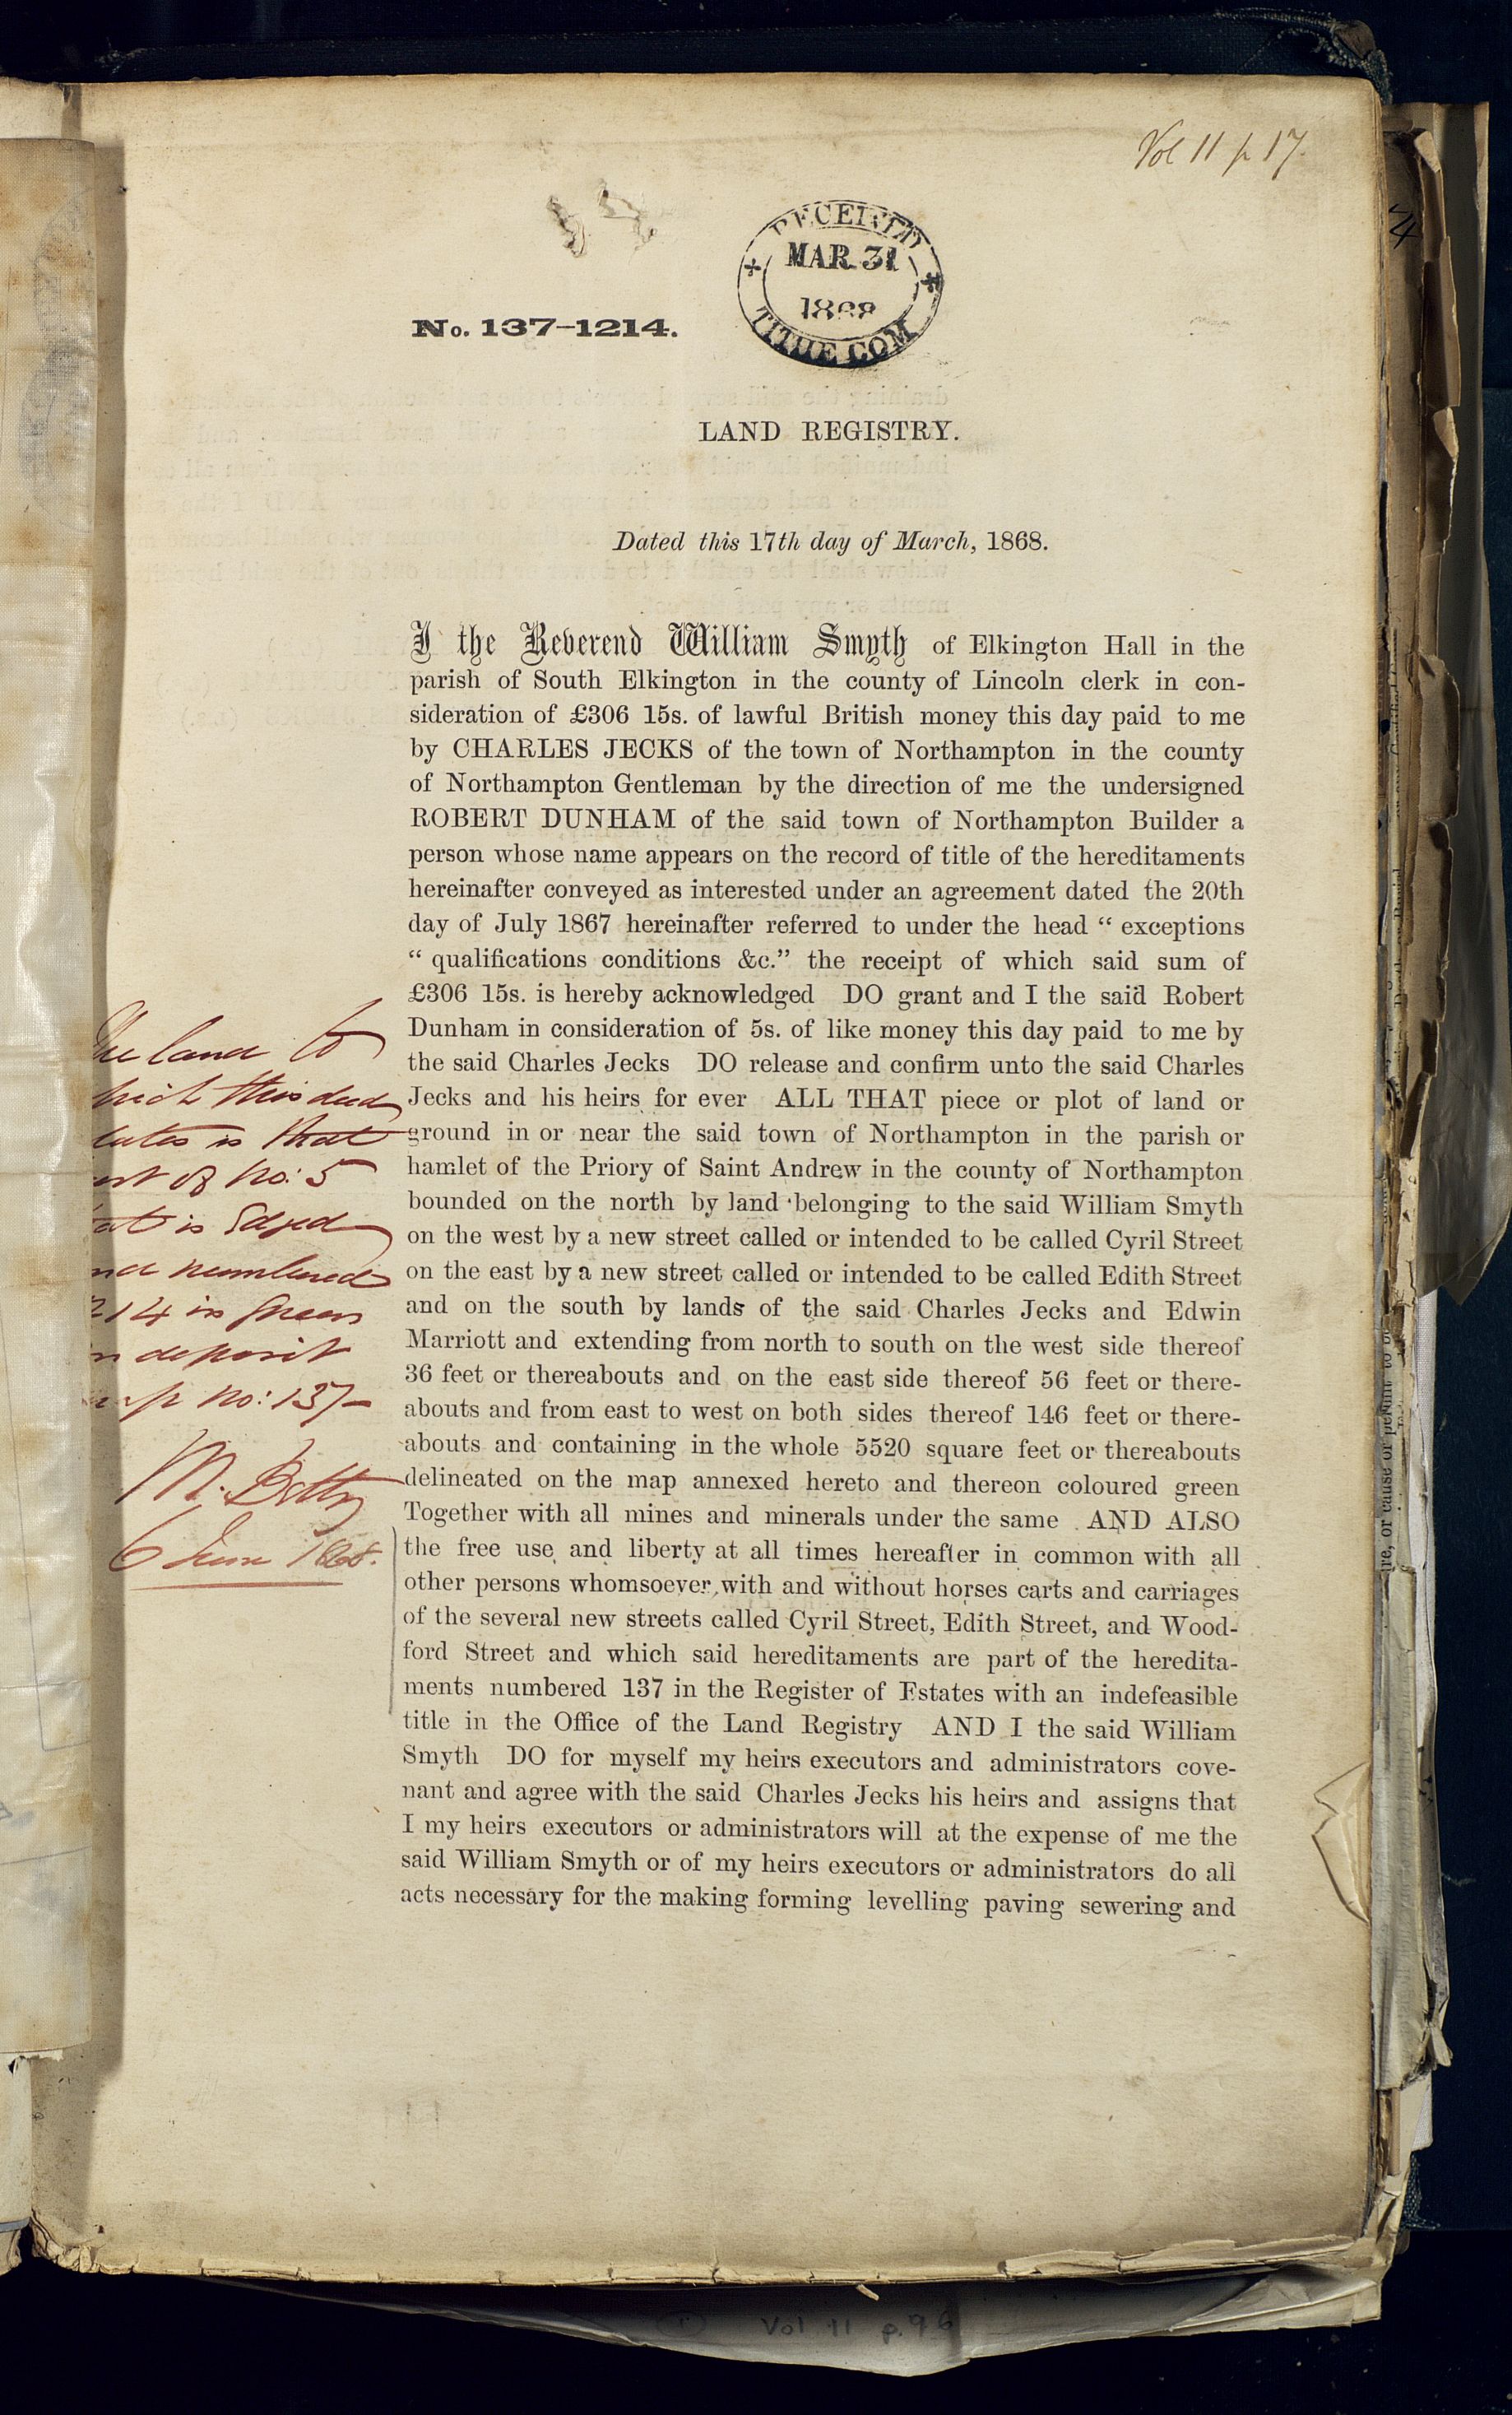 Vol 11 p 17.
RECEIVED
MAR. 31
TITHE COM
No. 137-1214.
LAND REGISTRY.
Dated this 17th day of March, 1868.
I the Reverend William Smyth of Elkington Hall in the
parish of South Elkington in the county of Lincoln clerk in con-
sideration of £306 15s. of lawful British money this day paid to me
by CHARLES JECKS of the town of Northampton in the county
of Northampton Gentleman by the direction of me the undersigned
ROBERT DUNHAM of the said town of Northampton Builder a
person whose name appears on the record of title of the hereditaments
hereinafter conveyed as interested under an agreement dated the 20th
day of July 1867 hereinafter referred to under the head “ exceptions
“ qualifications conditions &c.” the receipt of which said sum of
£306 15s. is hereby acknowledged DO grant and I the said Robert
Dunham in consideration of 5s. of like money this day paid to me by
the said Charles Jecks DO release and confirm unto the said Charles
Jecks and his heirs for ever ALL THAT piece or plot of land or
ground in or near the said town of Northampton in the parish or
hamlet of the Priory of Saint Andrew in the county of Northampton
bounded on the north by land belonging to the said William Smyth
on the west by a new street called or intended to be called Cyril Street
on the east by a new street called or intended to be called Edith Street
and on the south by lands of the said Charles Jecks and Edwin
Marriott and extending from north to south on the west side thereof
36 feet or thereabouts and on the east side thereof 56 feet or there-
abouts and from east to west on both sides thereof 146 feet or there-
abouts and containing in the whole 5520 square feet or thereabouts
delineated on the map annexed hereto and thereon coloured green
Together with all mines and minerals under the same AND ALSO
the free use and liberty at all times hereafter in common with all
other persons whomsoever with and without horses carts and carriages
of the several new streets called Cyril Street, Edith Street, and Wood-
ford Street and which said hereditaments are part of the heredita-
ments numbered 137 in the Register of Estates with an indefeasible
title in the Office of the Land Registry AND I the said William
Smyth DO for myself my heirs executors and administrators cove-
nant and agree with the said Charles Jecks his heirs and assigns that
I my heirs executors or administrators will at the expense of me the
said William Smyth or of my heirs executors or administrators do all
acts necessary for the making forming levelling paving sewering and
he land to
hich this deed
lates is that
of No: 5
at is Edged
numbered
214 in Green
n deposit
p No: 137
6 June 1868.
Vol 11 p.96
re, or cause or permit to